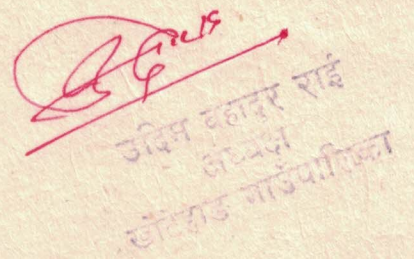 उद्दिम बहादुर राई
अध्यक्ष
खोटेहाङ गाउँपालिका